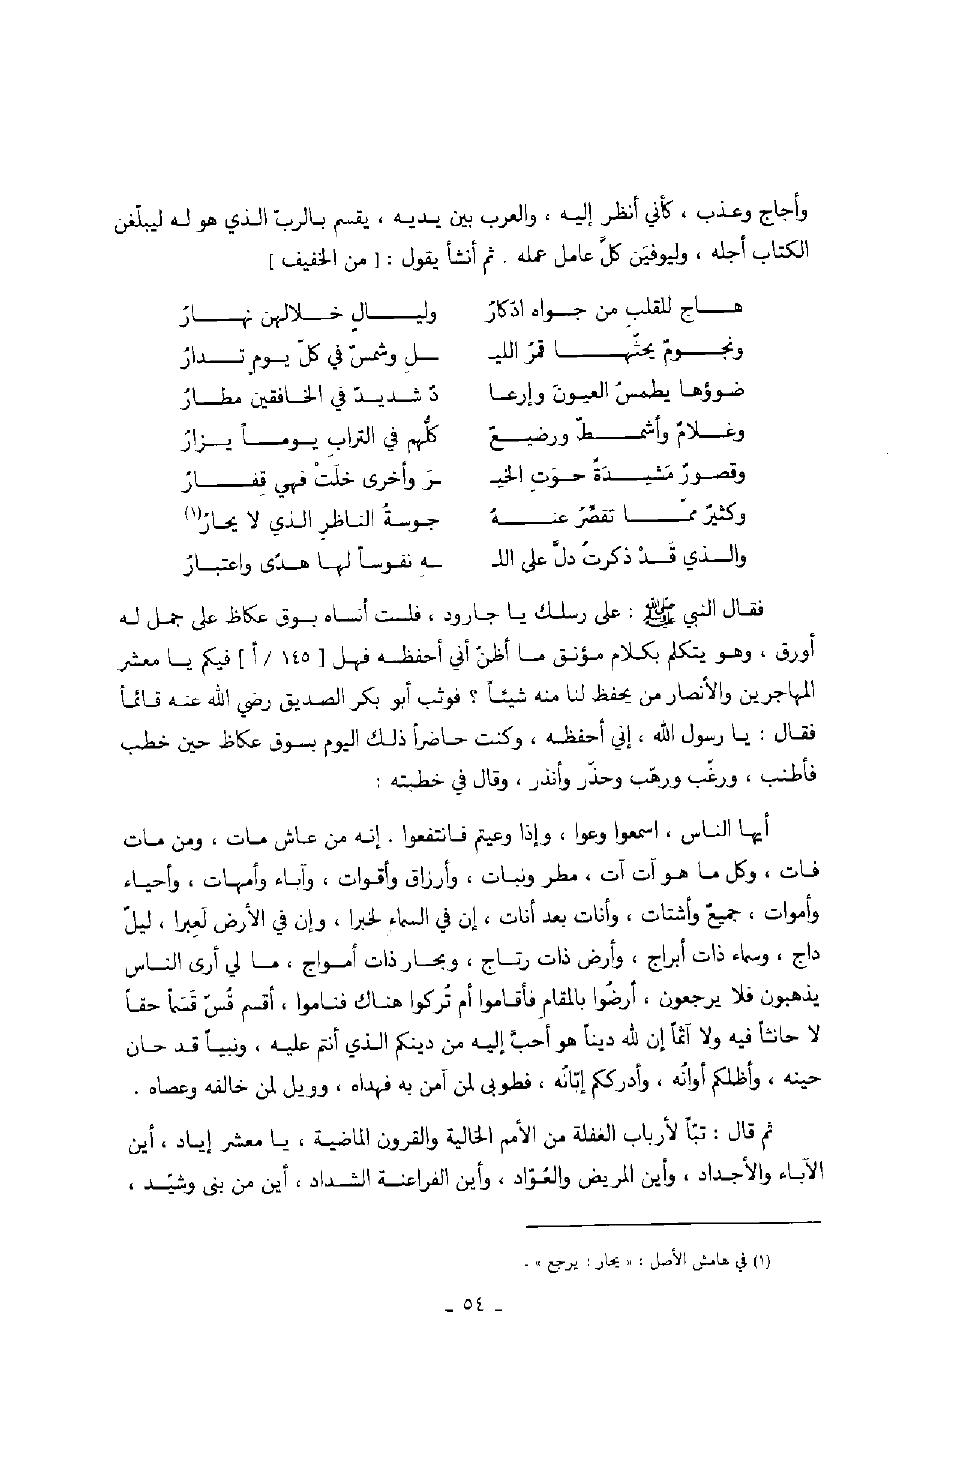 وأجاج وعذب ، كأني أنظر إليه ، والعرب بين يديه ، يقسم بالربّ الذي هو له ليبلّغن
الكتاب أجله ، وليوفيَن كلّ عامل عمله . ثم أنشأ يقول : [ من الخفيف ]
هاج للقلبِ من جواه ادّكارُ وليالٍ خلالهن نهارُ
ونجومٌ يحثُّها قمرُ الليـ ـلِ وشمسٌ في كلّ يومٍ تدارُ
ضوؤها يطمسُ العيونَ وإرعا دٌ شديدٌ في الخافقين مطارُ
وغلامٌ وأشمطٌ ورضيعٌ كلُّهم في الترابِ يوماً يزارُ
وقصورٌ مَشِيدةٌ حوَتِ الخيـ ـرَ وأخرى خلَتْ فهي قفارُ
وكثيرٌ ممّا تقصّرُ عنهُ جوسةُ الناظرِ الذي لا يحارُ(١)
والذي قدْ ذكرتُ دلَّ على اللـ ـهِ نفوساً لها هدًى واعتبارُ
فقال النبي ﷺ : على رسلك يا جارود ، فلست أنساه بسوق عكاظ على جمل له
أورق ، وهو يتكلم بكلام مؤنق ما أظنّ أني أحفظه فهل [ ١٤٥ / أ ] فيكم يا معشر
المهاجرين والأنصار من يحفظ لنا منه شيئاً ؟ فوثب أبو بكر الصديق رضي الله عنه قائماً
فقال : يا رسول الله ، إني أحفظه ، وكنت حاضراً ذلك اليوم بسوق عكاظ حين خطب
فأطنب ، ورغّب ورهّب وحذّر وأنذر ، وقال في خطبته :
أيها الناس ، اسمعوا وعوا ، وإذا وعيتم فانتفعوا . إنه من عاش مات ، ومن مات
فات ، وكل ما هو آت آت ، مطر ونبات ، وأرزاق وأقوات ، وآباء وأمهات ، وأحياء
وأموات ، جميعٌ وأشتات ، وأنات بعد أنات ، إن في السماء لخبرا ، وإن في الأرض لَعبرا ، ليلٌ
داج ، وسماء ذات أبراج ، وأرض ذات رتاج ، وبحار ذات أمواج ، ما لي أرى الناس
يذهبون فلا يرجعون ، أرضُوا بالمقام فأقاموا أم تُركوا هناك فناموا ، أقسم قُسّ قسَماً حقاً
لا حانثاً فيه ولا آثماً إن لله ديناً هو أحبّ إليه من دينكم الذي أنتم عليه ، ونبياً قد حان
حينه ، وأظلكم أوانُه ، وأدرككم إبّانُه ، فطوبى لمن آمن به فهداه ، وويل لمن خالفه وعصاه .
ثم قال : تبّاً لأرباب الغفلة من الأمم الخالية والقرون الماضية ، يا معشر إياد ، أين
الآباء والأجداد ، وأين المريض والعُوّاد ، وأين الفراعنة الشداد ، أين من بنى وشيّد ،
(١) في هامش الأصل : « يحار : يرجع » .
ـ ٥٤ ـ